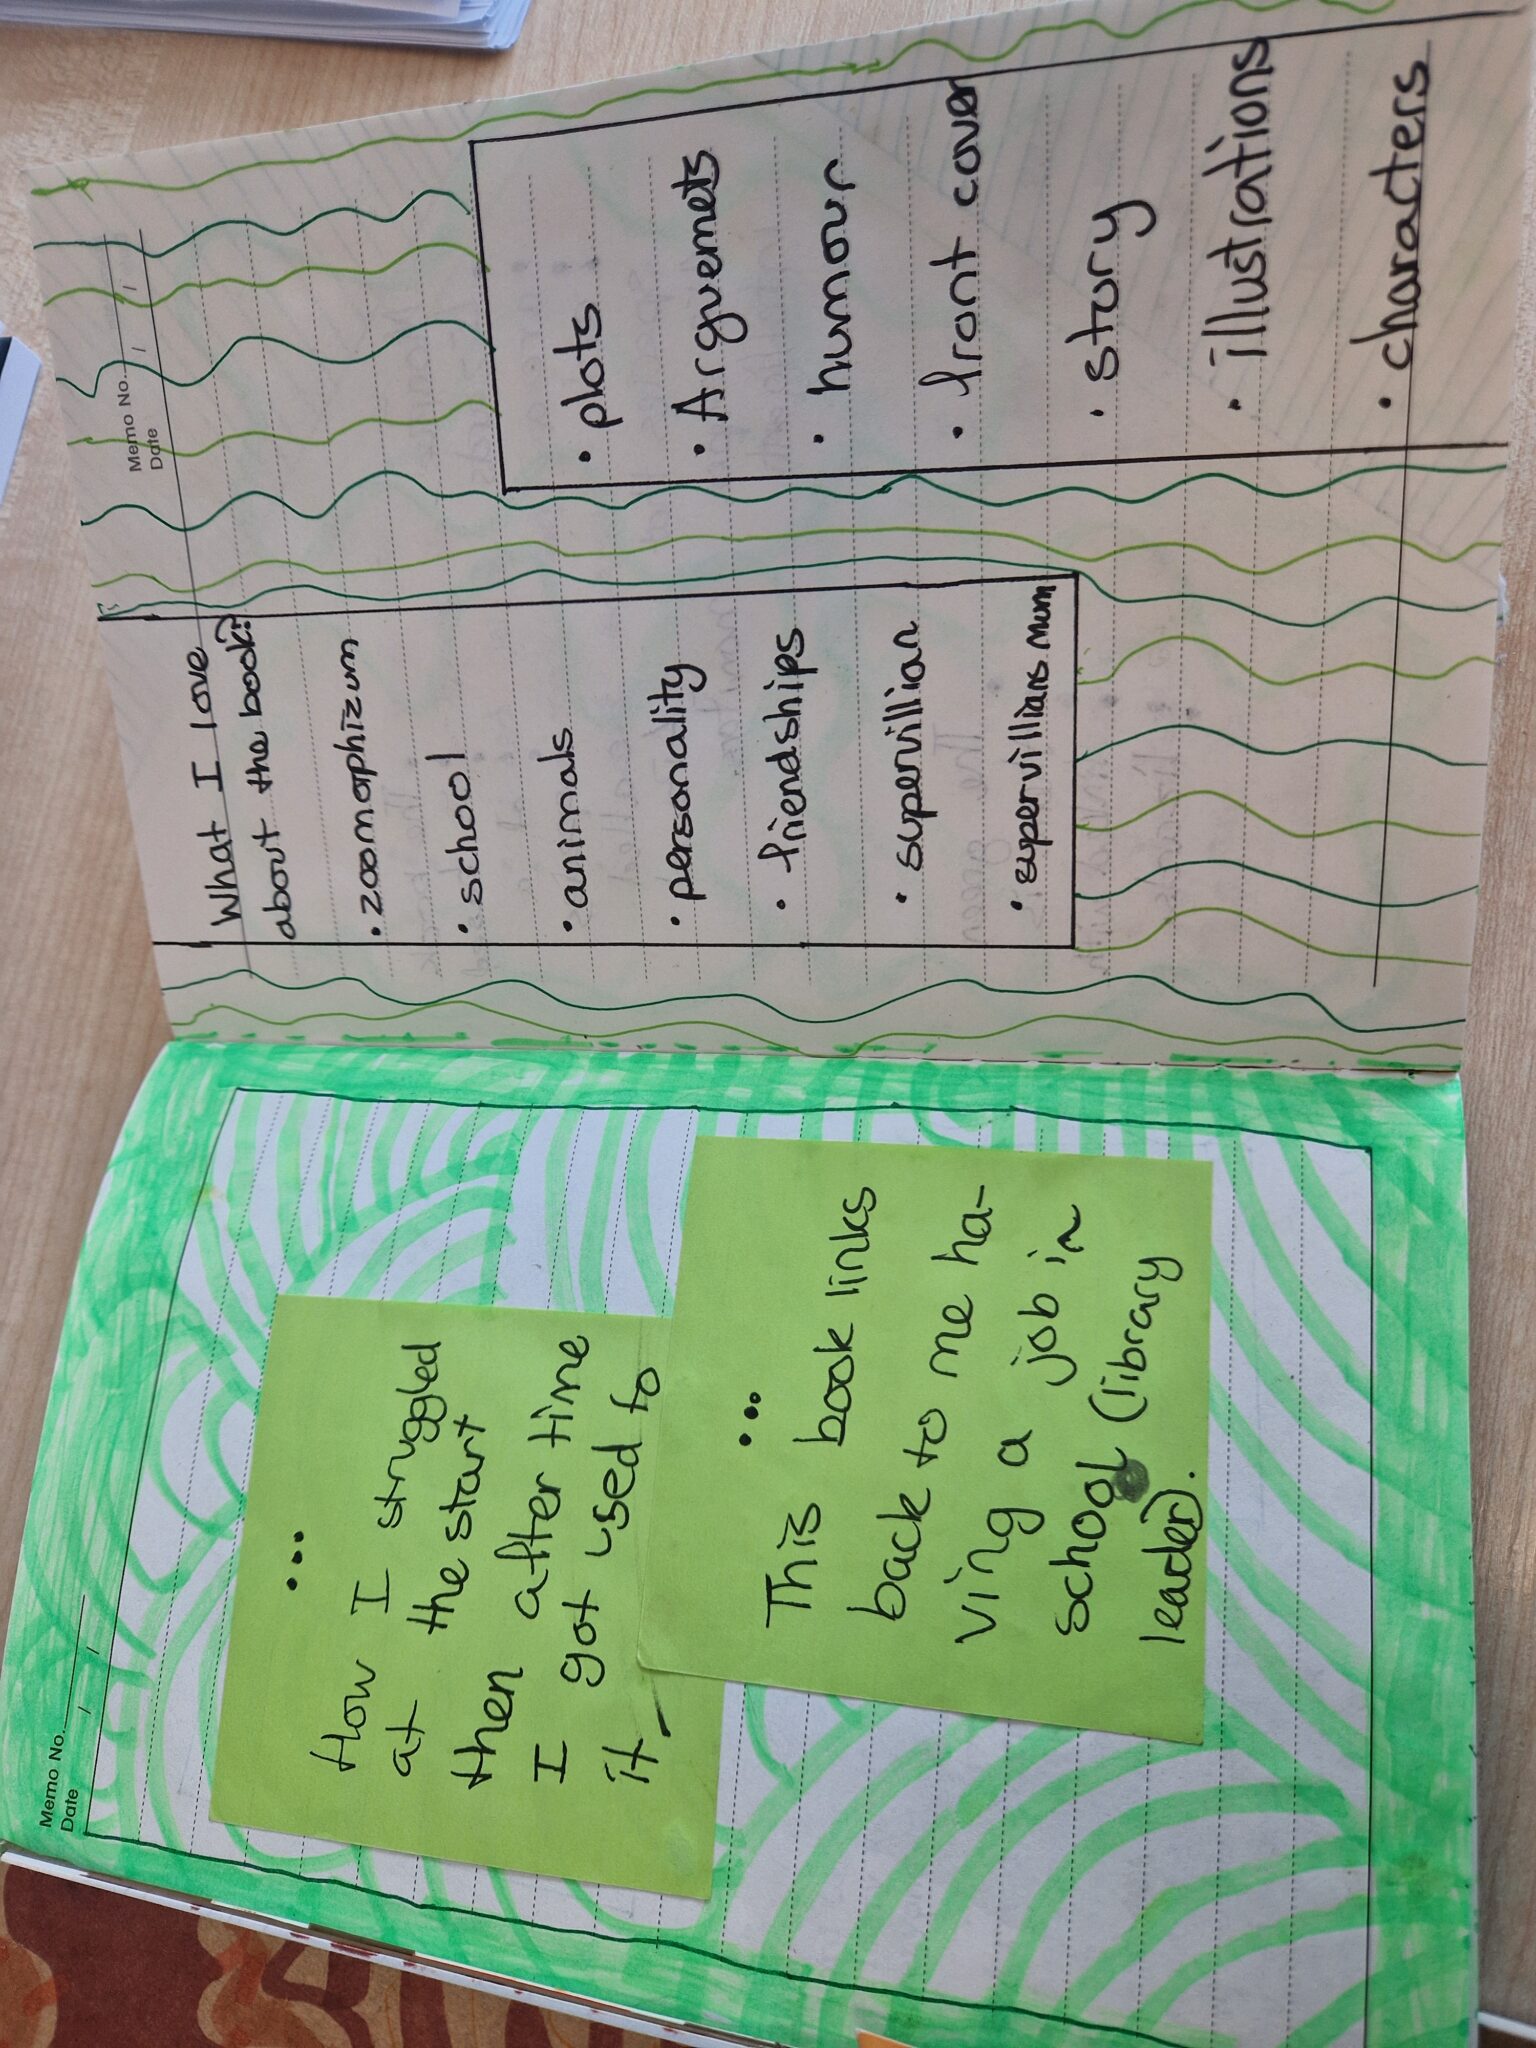 Memo No.
Date / /
...
How I struggled
at the start
then after time
I got used to
it
...
This book links
back to me ha-
ving a job in
school (library
leader).
Memo No.
Date / /
What I love
about the book?
• zoomorphizum
• school
• animals
• personality
• friendships
• supervillian
• supervillians mum
• plots
• Arguemets
• humour
• front cover
• story
• illustrations
• characters